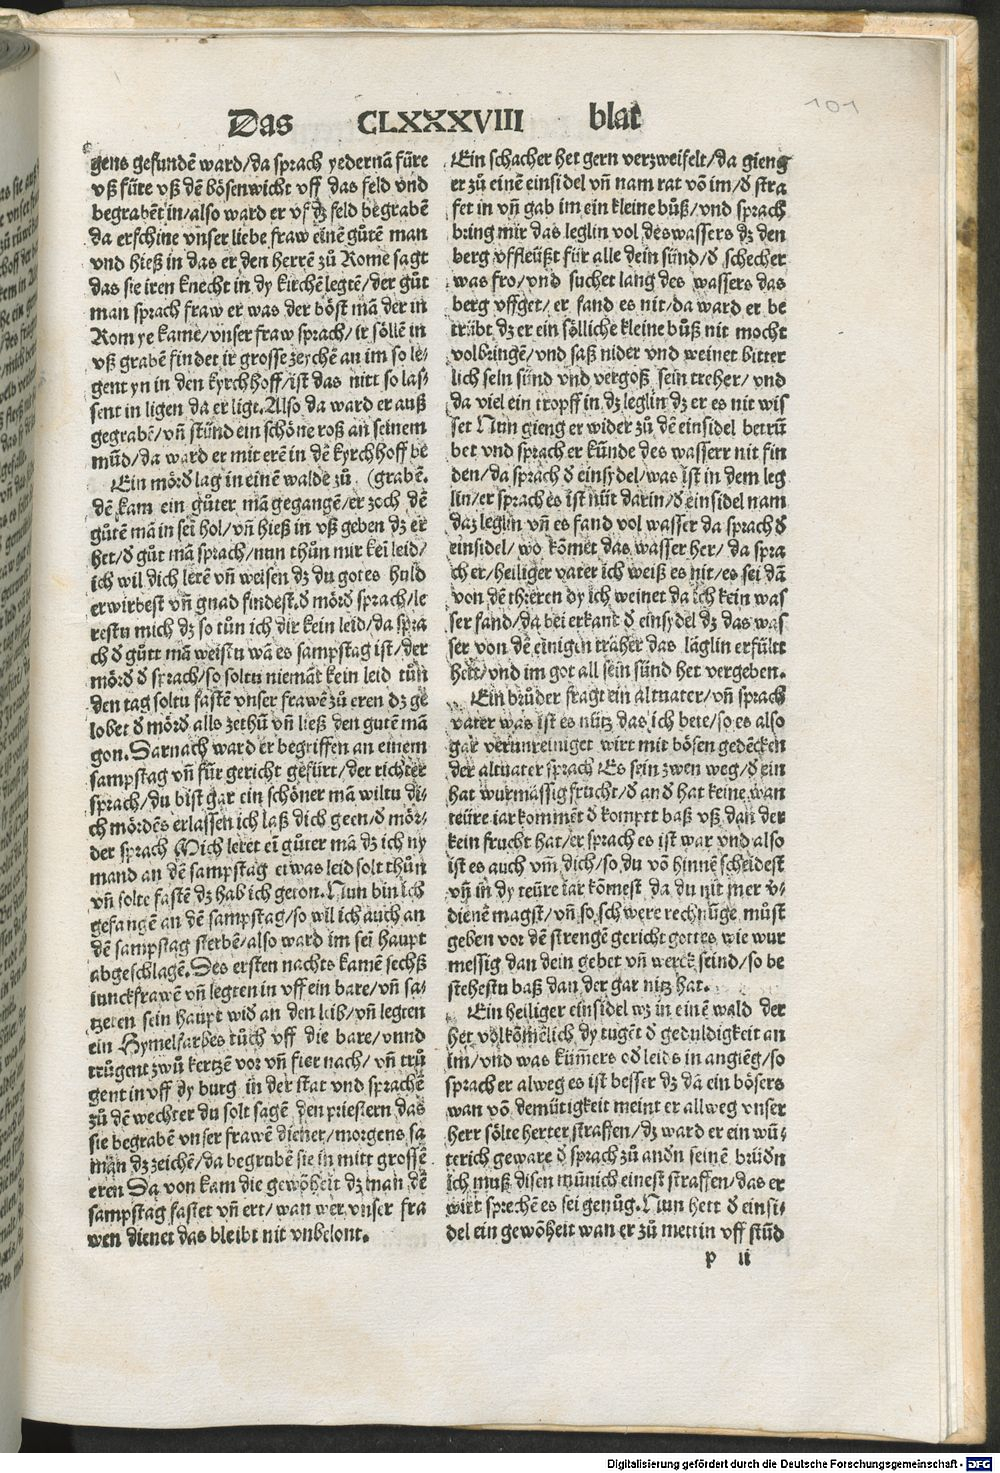 101
Das CLXXXVIII blat
gens gefundē ward/da sprach yedernā füre
vß füre vß dē bösenwicht vff das feld vnd
begrabēt in/also ward er vf dʒ feld begrabē
da erschine vnser liebe fraw einē gůtē man
vnd hieß in das er den herrē zů Rome sagt
das sie iren knecht in dy kirchē legtē/der gůt
man sprach fraw er was der böst mā der in
Rom ye kame/vnser fraw sprach/ir söllē in
vß grabē findet ir grosse zeychē an im so le⸗
gent yn in den kyrchhoff/ist das nitt so las⸗
sent in ligen da er ligt. Also da ward er auß
gegrabē/vn̄ stůnd ein schöne roß an seinem
mūd/da ward er mit erē in dē kyrchhoff be
Ein mörd lag in einē walde zů (grabē.
dē kam ein gůter mā gegangē/er zoch dē
gůtē mā in sei hol/vn̄ hieß in vß geben dʒ er
het/d gůt mā sprach/nun thůn mir kei leid/
ich wil dich lerē vn̄ weisen dʒ du gotes huld
erwirbest vn̄ gnad findest.d mörd sprach/le
restu mich dʒ so tůn ich dir kein leid/da spra
ch d gůtt mā weistu wā es sampstag ist/der
mörd d sprach/so soltu niemāt kein leid tůn
den tag soltu fastē vnser frawē zů eren dʒ ge
lobet d mörd alls zethů vn̄ ließ den gutē mā
gon. Darnach ward er begriffen an einem
sampstag vn̄ für gericht gefürt/der richter
sprach/du bist gar ein schöner mā wiltu di⸗
ch mördēs erlassen ich laß dich geen/d mör⸗
der sprach Mich leret eī gůter mā dʒ ich ny
mand an dē sampstag etwas leid solt thůn
vn̄ solte fastē dʒ hab ich geton. Nun bin ich
gefangē an dē sampstag/so wil ich auch an
dē sampstag sterbē/also ward im sei haupt
abgeschlagē. Des ersten nachts kamē sechß
iunckfrawē vn̄ legten in vff ein bare/vn̄ sa⸗
tzeten sein haupt wid an den leib/vn̄ legten
ein Hymelfarbes tůch vff die bare/vnnd
trůgent zwů kertzē vor vn̄ fier nach/vn̄ trů
gent in vff dy burg in der stat vnd sprachē
zů dē wechter du solt sagē den priestern das
sie begrabē vnser frawē diener/morgens sa
man dʒ zeichē/da begrube sie in mitt grossē
eren Da von kam die gewöheit dʒ man dē
sampstag fastet vn̄ ert/wan wer vnser fra
wen dienet das bleibt nit vnbelont.
Ein schacher het gern verzweifelt/da gieng
er zů einē einsidel vn̄ nam rat vō im/d stra
fet in vn̄ gab im ein kleine bůß/vnd sprach
bring mir das leglin vol des wassers dʒ den
berg vffleüßt für alle dein sünd/d schecher
was fro/vnd suchet lang des wassers das
berg vffget/er fand es nit/da ward er be
trübt dʒ er ein sölliche kleine bůß nit mocht
volbringē/vnd saß nider vnd weinet bitter
lich sein sünd vnd vergoß sein treher/vnd
da viel ein tropff in dʒ leglin dʒ er es nit wis
set Nun gieng er wider zů dē einsidel betrü
bet vnd sprach er künde des wasserr nit fin
den/da sprach d einsydel/was ist in dem leg
lin/er sprach es ist nüt darin/d einsidel nam
daz leglin vn̄ es fand vol wasser da sprach d
einsidel/wo kōmet das wasser her/da spra
ch er/heiliger vater ich weiß es nit/es sei dā
von dē threren dy ich weinet da ich kein was
ser fand/da bei erkant d einsydel dʒ das was
ser von dē einigin traher das läglin erfüllt
hett/vnd im got all sein sünd het vergeben.
Ein brůder fragt ein altuater/vn̄ sprach
vater was ist es nütz das ich bete/so es also
gar verunreiniget wirt mit bösen gedēcken
der altuater sprach Es sein zwen weg/d ein
hat wurmässig frücht/d and hat keine wan
teüre iar kommēt d komptt baß vß dan der
kein frucht hat/er sprach es ist war vnd also
ist es auch vm̄ dich/so du vō hinnē scheidest
vn̄ in dy teüre iar kōmest da du nit mer v⸗
dienē magst/vn̄ so schwere rechnūge můst
geben vor dē strengē gericht gottes wie wur
messig dan dein gebet vn̄ werck seind/so be
stehestu baß dan der gar nitz hat.
Ein heiliger einsidel wz in einē wald der
het volkōmēlich dy tugēt d geduldigkeit an
im/vnd was kūmers od leids in angiēg/so
sprach er alweg es ist besser dʒ da ein bösers
wan vō demütigkeit meint er allweg vnser
herr sölte herter straffen/dʒ ward er ein wü⸗
terich geware d sprach zů andn seinē brüdn
ich muß disen münich einest straffen/das er
wirt sprechē es sei genůg. Nun hett d einsi⸗
del ein gewōheit wan er zů mettin vff stůd
p ii
Digitalisierung gefördert durch die Deutsche Forschungsgemeinschaft - DFG